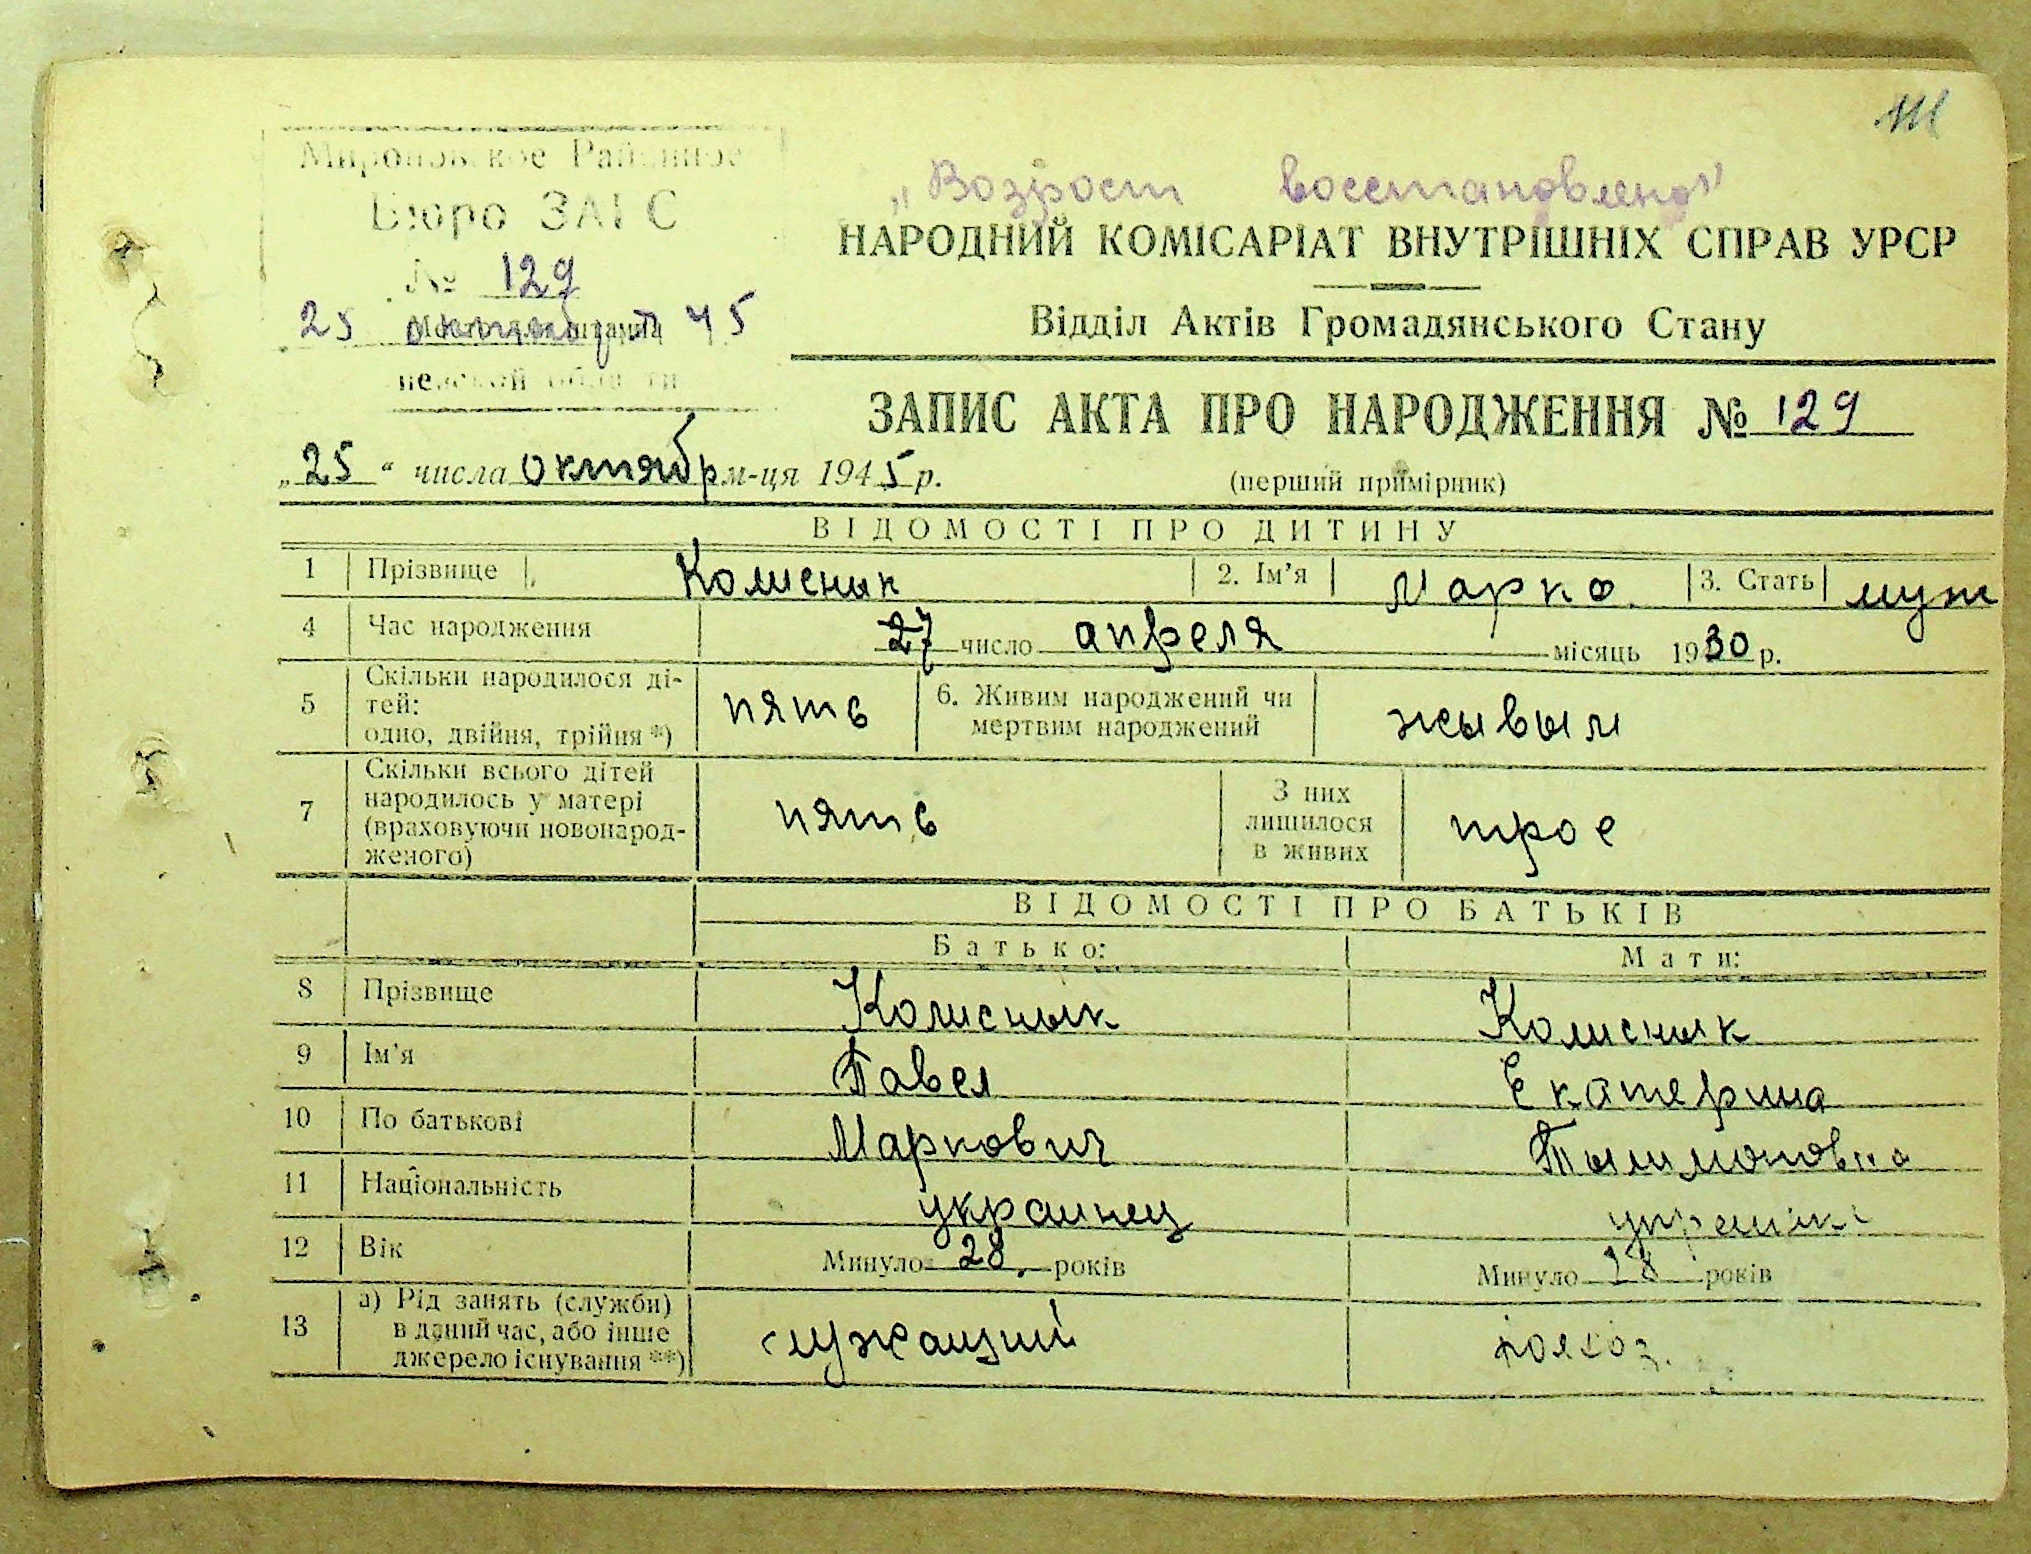 111
Мироновское Районное
Бюро ЗАГС
№ 129
25 октября 45
Місце для штампа
невской области
„Возрост восстановлено"
НАРОДНИЙ КОМІСАРІАТ ВНУТРІШНІХ СПРАВ УРСР
Відділ Актів Громадянського Стану
ЗАПИС АКТА ПРО НАРОДЖЕННЯ № 129
„25" числа октябр м-ця 1945 р.
(перший примірник)
ВІДОМОСТІ ПРО ДИТИНУ
1 Прізвище Колиснык 2. Ім'я Марко 3. Стать муж
4 Час народження 27 число апреля місяць 1930 р.
5 Скільки народилося ді-
тей:
одно, двійня, трійня *) пять 6. Живим народжений чи
мертвим народжений жывым
7 Скільки всього дітей
народилось у матері
(враховуючи новонарод-
женого) пять З них
лишилося
в живих трое
ВІДОМОСТІ ПРО БАТЬКІВ
Батько: Мати:
8 Прізвище Колиснык Колиснык
9 Ім'я Павел Екатерина
10 По батькові Маркович Тылимоновна
11 Національність украинец
12 Вік Минуло 28 років Минуло 28 років
13 а) Рід занять (служби)
в даний час, або інше
джерело існування **) служащий колхоз.